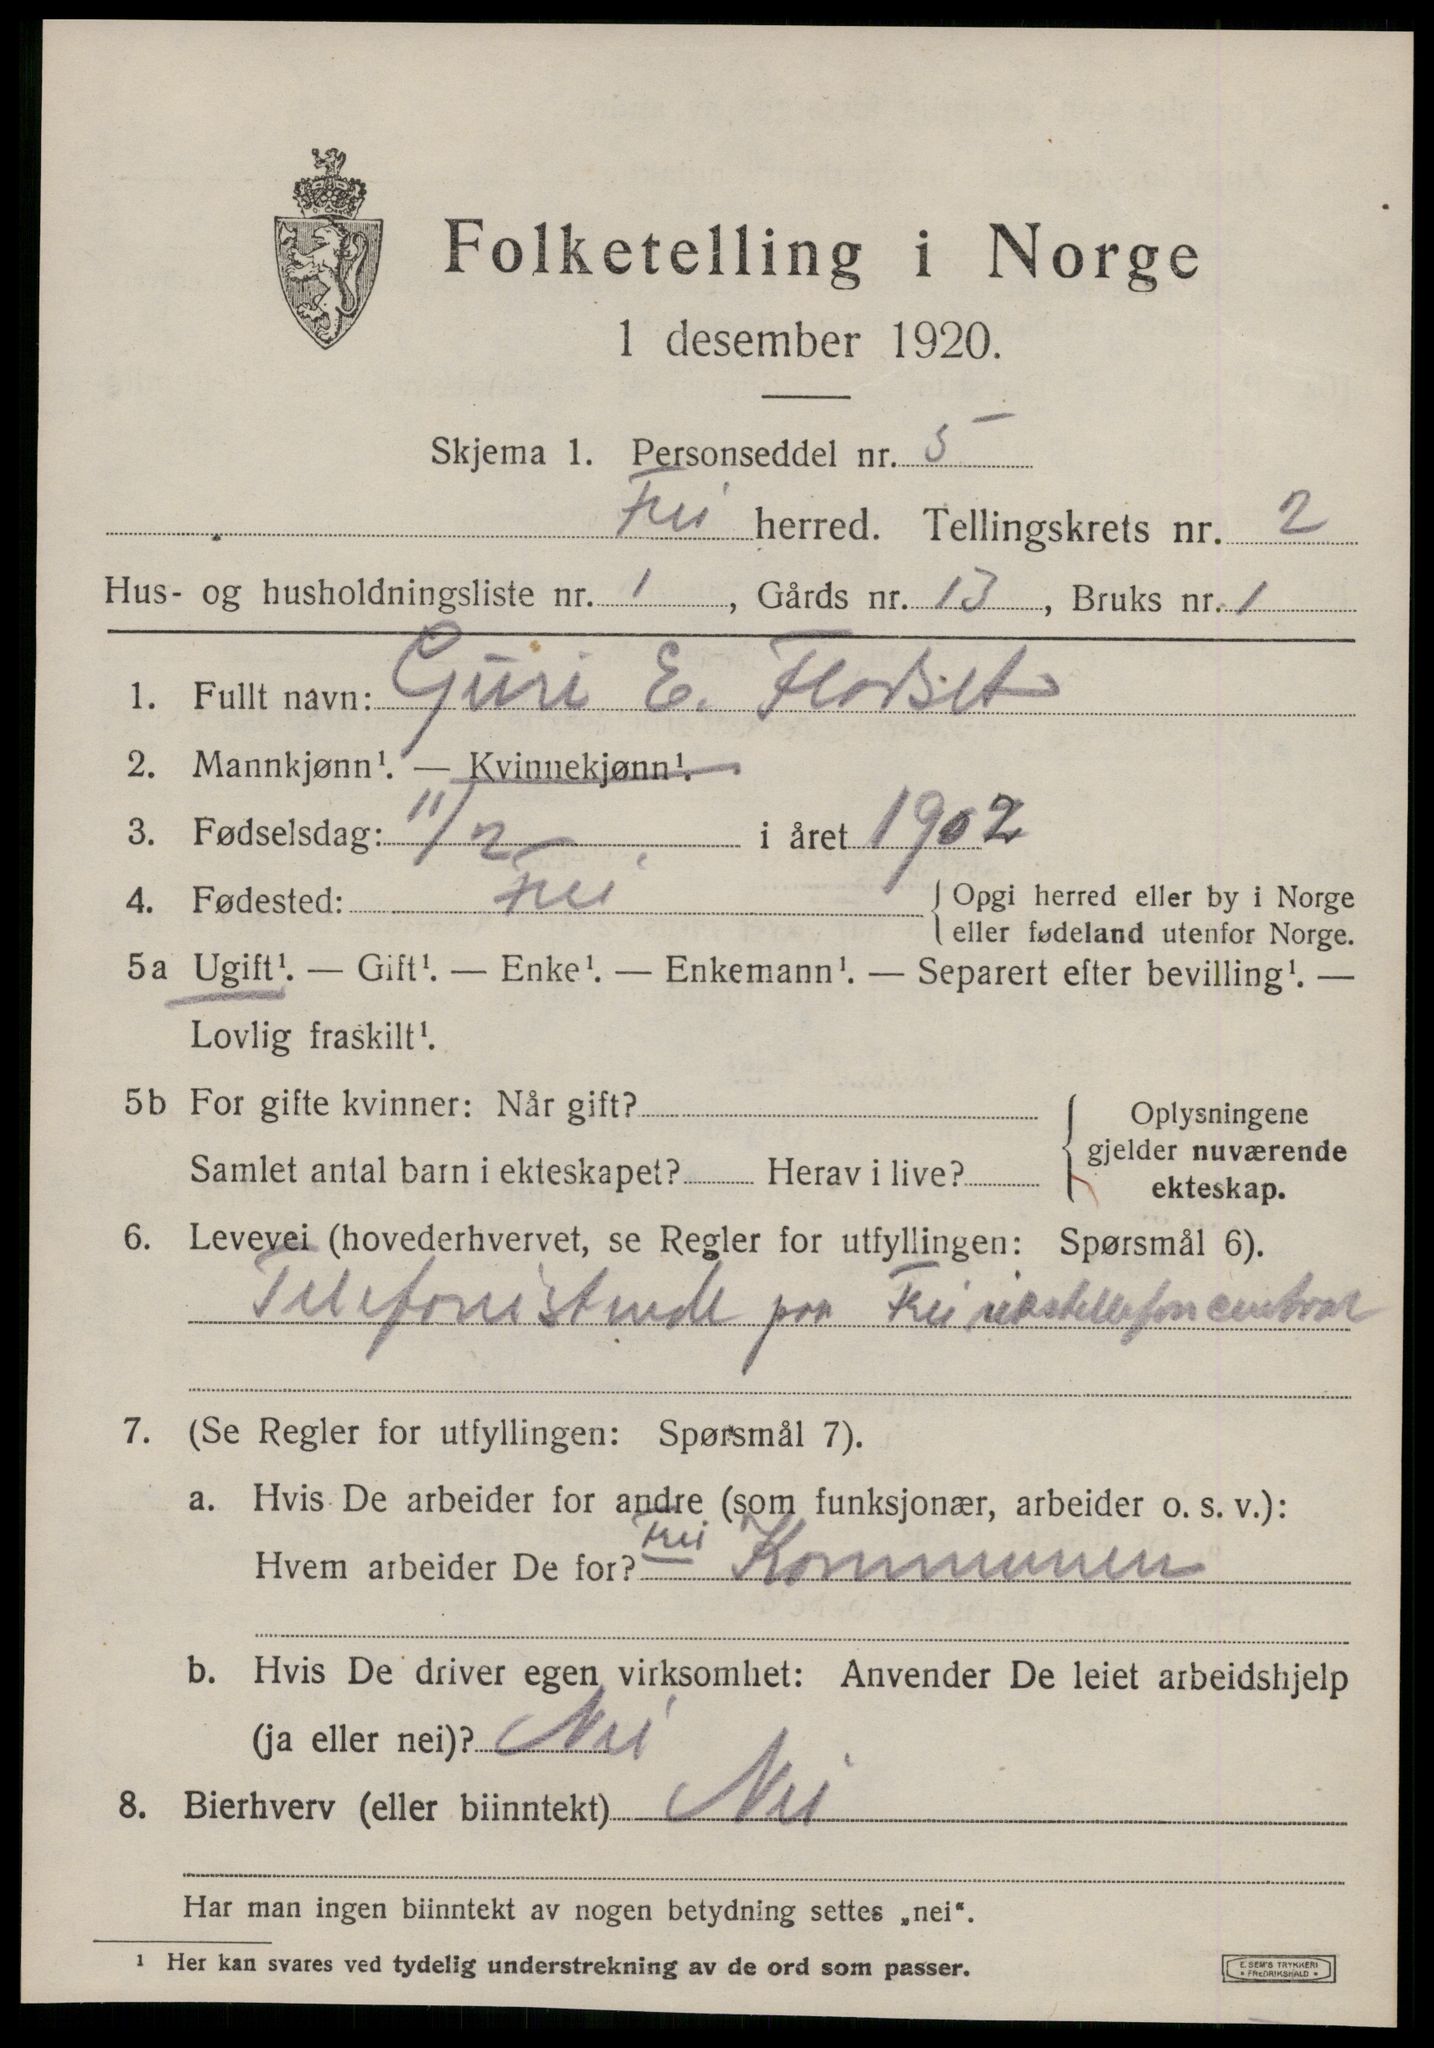 Folketelling i Norge
1 desember 1920.
Skjema 1. Personseddel nr. 5
Frei herred. Tellingskrets nr. 2
Hus- og husholdningsliste nr. 1, Gårds nr. 13, Bruks nr. 1
1. Fullt navn: Guri E. Flatset
2. Mannkjønn¹. — Kvinnekjønn¹.
3. Fødselsdag: 11/2 i året 1902
4. Fødested: Frei { Opgi herred eller by i Norge
eller fødeland utenfor Norge.
5a Ugift¹. — Gift¹. — Enke¹. — Enkemann¹. — Separert efter bevilling¹. —
Lovlig fraskilt¹.
5b For gifte kvinner: Når gift?
Samlet antal barn i ekteskapet? Herav i live?
{ Oplysningene
gjelder nuværende
ekteskap.
6. Levevei (hovederhvervet, se Regler for utfyllingen: Spørsmål 6).
Telefonistinde paa Frei rikstellefoncentral
7. (Se Regler for utfyllingen: Spørsmål 7).
a. Hvis De arbeider for andre (som funksjonær, arbeider o. s. v.):
Hvem arbeider De for? Frei Kommunen
b. Hvis De driver egen virksomhet: Anvender De leiet arbeidshjelp
(ja eller nei)? Nei
8. Bierhverv (eller biinntekt) Nei
Har man ingen biinntekt av nogen betydning settes „nei“.
¹ Her kan svares ved tydelig understrekning av de ord som passer.
E. SEM'S TRYKKERI
• FREDRIKSHALD •